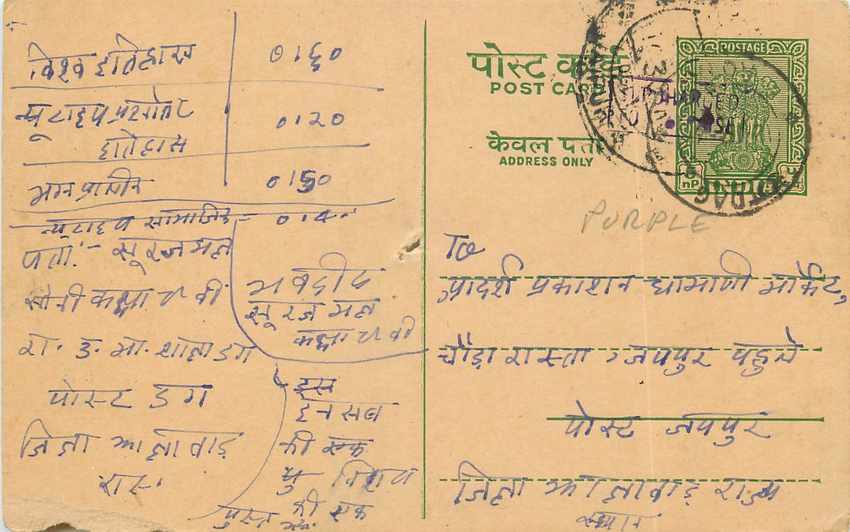 विश्व इतिहास 0160
न्यूटाइप प्रश्नोत्तर 0120
इतिहास
मध्य प्राचीन 0150
न्यूटाइप सामाजिक 014
पता:- सूरजमल
सोनी कक्षा
रा. उ. मा. शाला डग
पोस्ट डग
जिला झालावाड़
राज.
भवदीय
सूरजमल
कक्षा
इस
इन सब
की एक
की एक
पुस्तक
पोस्ट कार्ड
POST CARD
केवल पता
ADDRESS ONLY
POSTAGE
nP
PURPLE
To
आदर्श प्रकाशन धामाणी मार्केट,
चौड़ा रास्ता, जयपुर पहुंचे
पोस्ट जयपुर
जिला झालावाड़ राज
स्थान